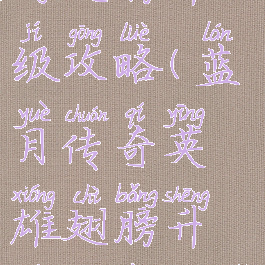 jí gōng lüè lán
级攻略(蓝
yuè chuán qí yīng
月传奇英
xióng chì bǎng shēng
雄翅膀升